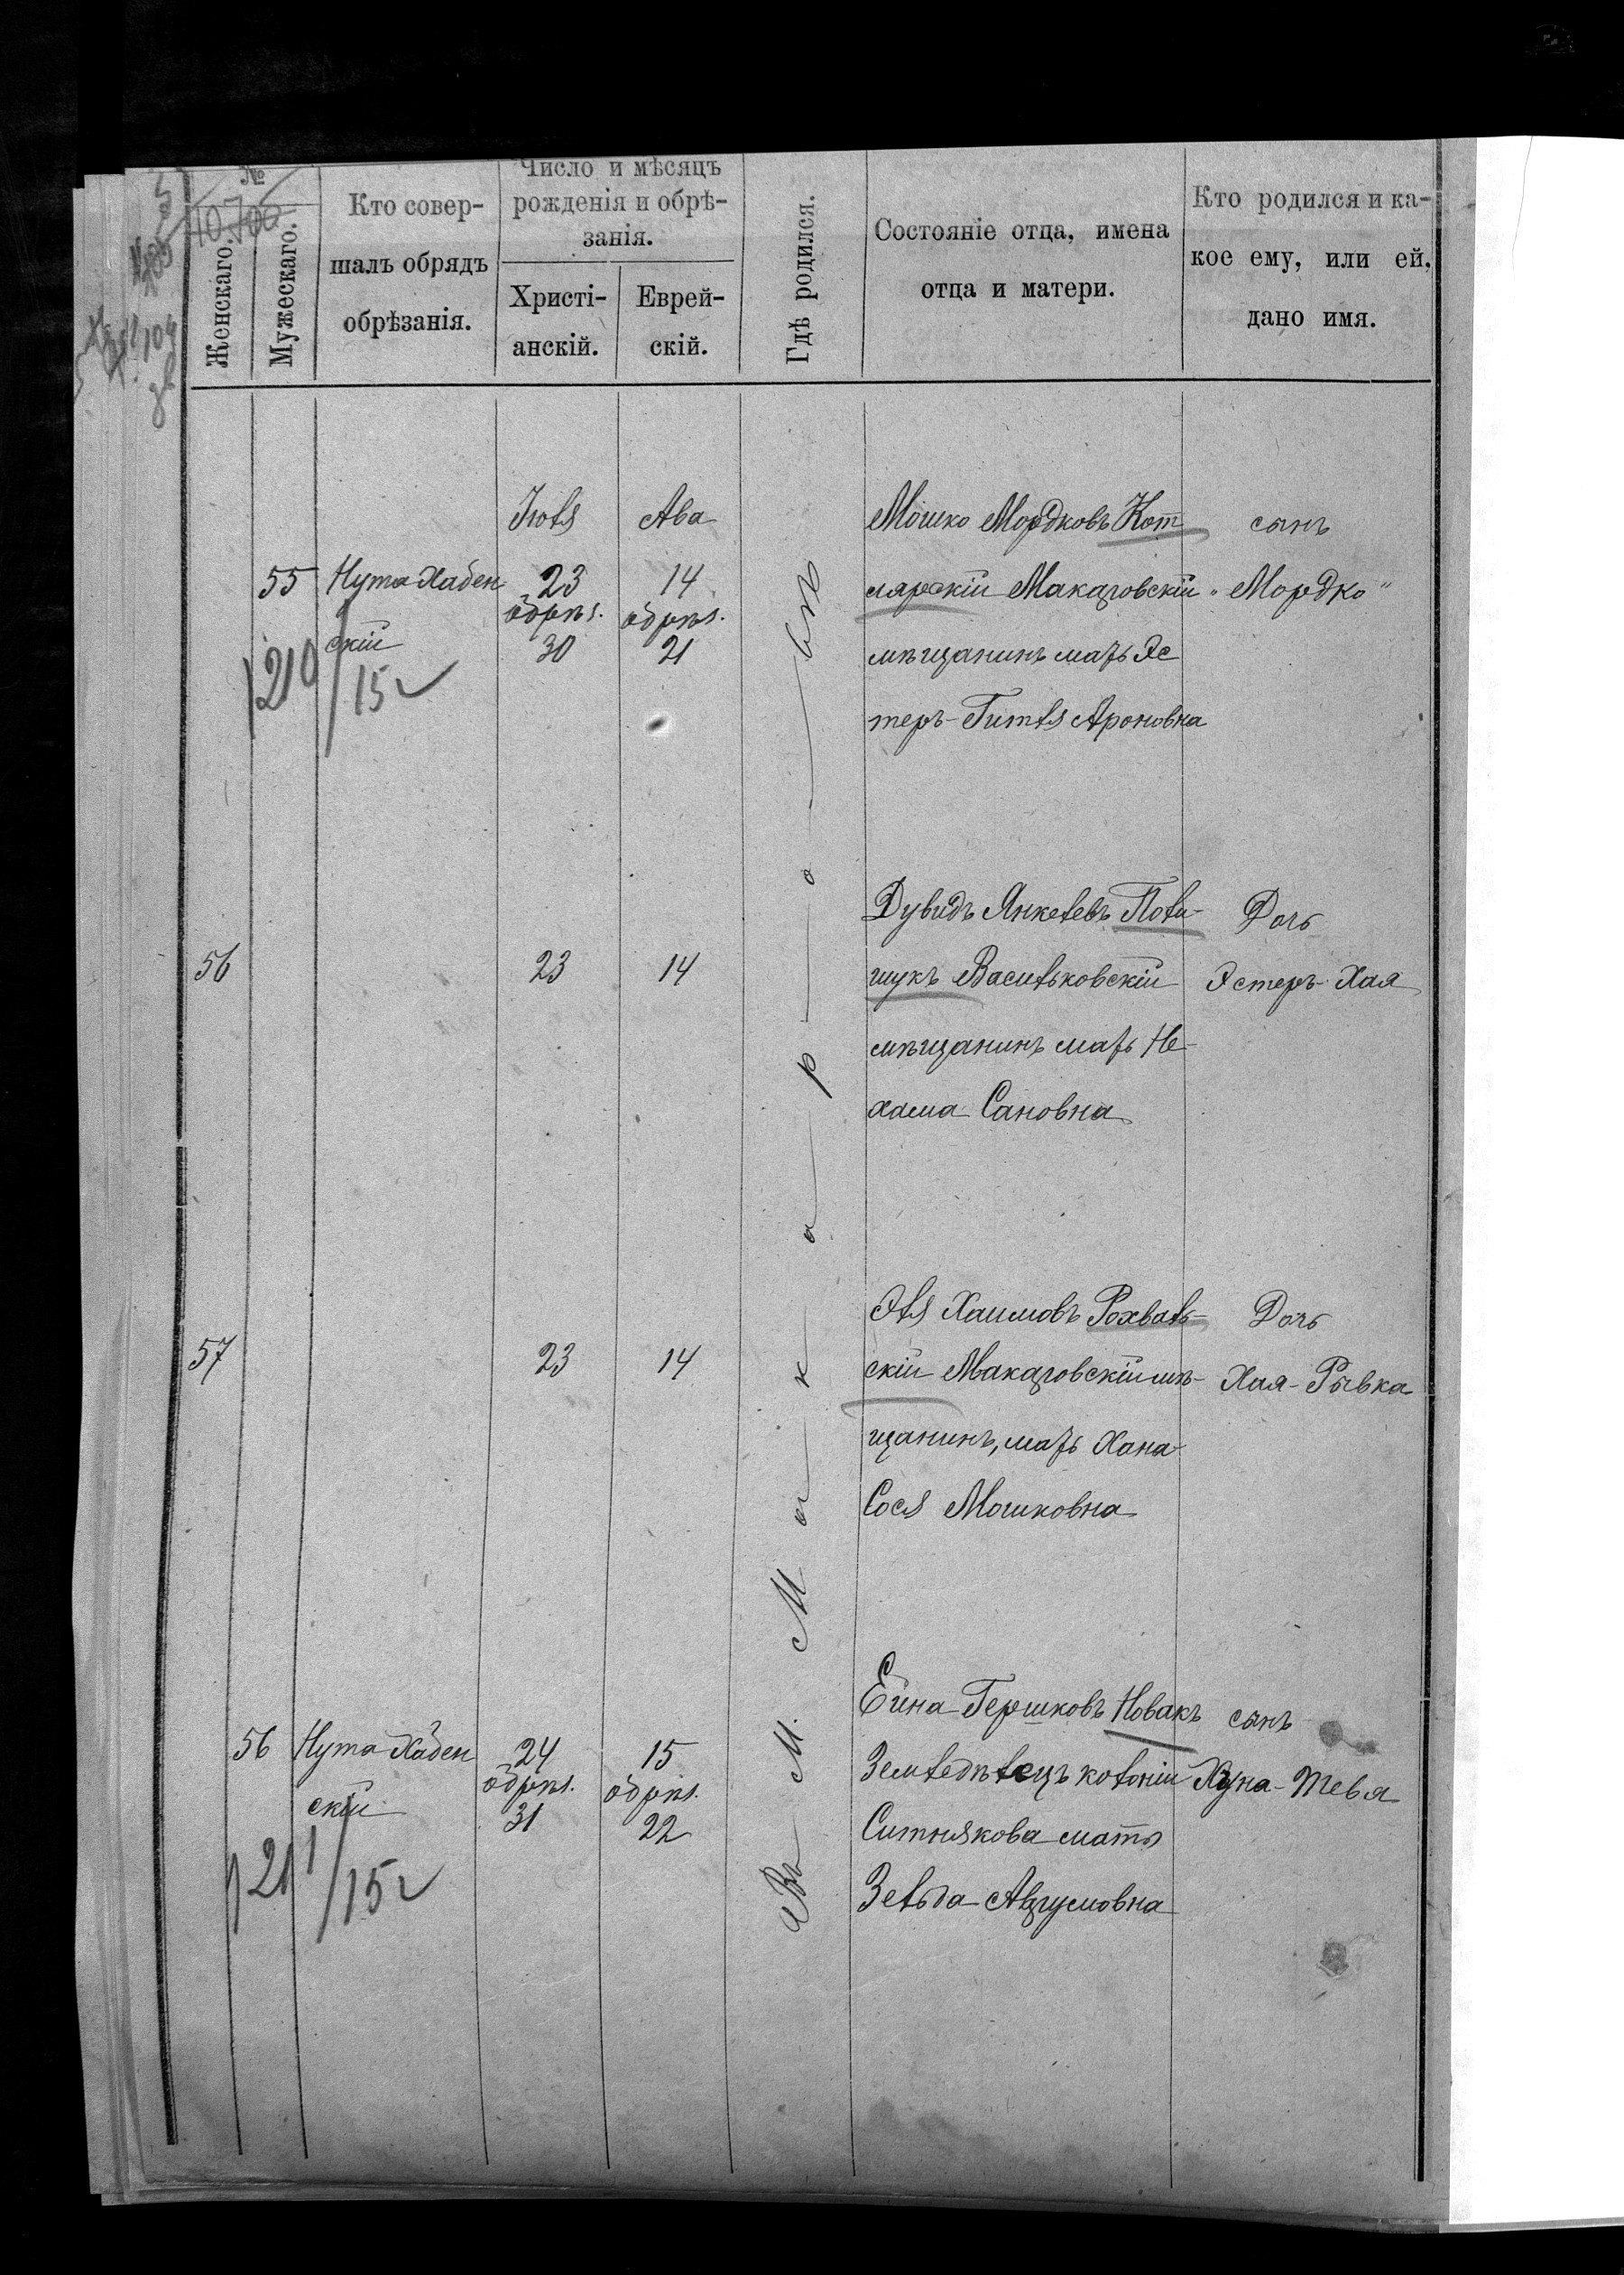 №
Женскаго.
Мужескаго.
Кто совер-
шалъ обрядъ
обрѣзанія.
Число и мѣсяцъ
рожденія и обрѣ-
занія.
Христі-
анскій.
Еврей-
скій.
Гдѣ родился.
Состояніе отца, имена
отца и матери.
Кто родился и ка-
кое ему, или ей,
дано имя.
Въ м. Макаровѣ
55
Нута Хабен
скій
210/15
Іюль
23
обрѣз.
30
Ава
14
обрѣз.
21
Мошко Мордковъ Кот
лярскій Макаровскій
мѣщанинъ мать Эс
теръ-Гитль Ароновна
сынъ
„Мордко"
56
23
14
Дувидъ Янкелевъ Поли-
щукъ Васильковскій
мѣщанинъ мать Не-
хама Сановна
Дочь
Эстеръ-Хая
57
23
14
Эль Хаимовъ Рохваль-
скій Макаровскій мѣ-
щанинъ, мать Хана
Сося Мошковна
Дочь
Хая-Рывка
56
Нута Хабен
скій
211/15
24
обрѣз.
31
15
обрѣз.
22
Ейна Гершковъ Новакъ
Земледѣлецъ колоніи
Ситнякова мать
Зельда Аврумовна
сынъ
Хуна-Тевья